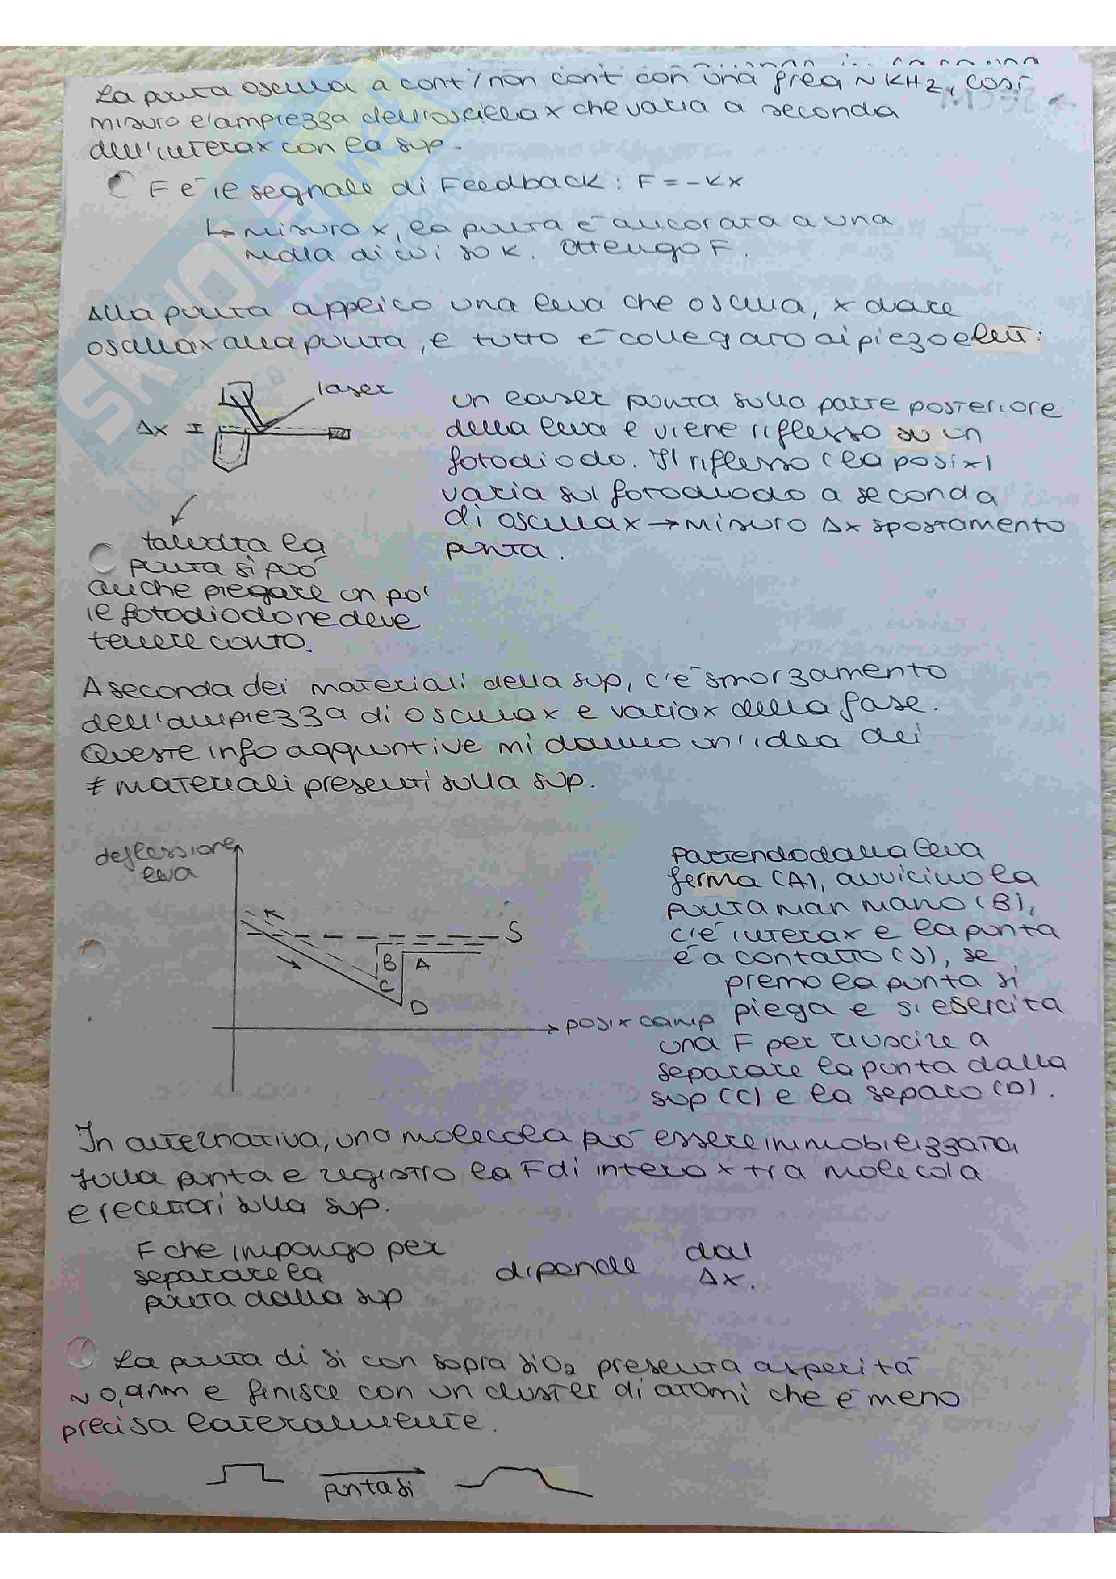 La punta oscilla a cont/non cont con una freq ~ KHz, così
misuro l'ampiezza dell'oscillax che varia a seconda
dell'interax con la sup.
F è il segnale di Feedback: F = -Kx
↳ misuro x, la punta è ancorata a una
molla di cui so K. Ottengo F.
Alla punta applico una leva che oscilla, x dare
oscillax alla punta, e tutto è collegato ai piezoelett:
laser
Δx
un laser punta sulla parte posteriore
della leva e viene riflesso su un
fotodiodo. Il riflesso (la posix)
varia sul fotodiodo a seconda
di oscillax → misuro Δx spostamento
punta.
talvolta la
punta si può
anche piegare un po'
il fotodiodo ne deve
tenere conto.
A seconda dei materiali della sup, c'è smorzamento
dell'ampiezza di oscillax e variax della fase.
Queste info aggiuntive mi danno un'idea dei
≠ materiali presenti sulla sup.
deflessione
leva
S
B A
C
D
posix camp
Partendo dalla leva
ferma (A), avvicino la
punta man mano (B),
c'è interax e la punta
è a contatto (S), se
premo la punta si
piega e si esercita
una F per riuscire a
separare la punta dalla
sup (C) e la separo (D).
In alternativa, una molecola può essere immobilizzata
sulla punta e registro la F di interax tra molecola
e recettori sulla sup.
F che impongo per
separare la
punta dalla sup
dipende
dal
Δx.
La punta di Si con sopra SiO2 presenta asperità
~ 0,9nm e finisce con un cluster di atomi che è meno
precisa lateralmente.
punta Si